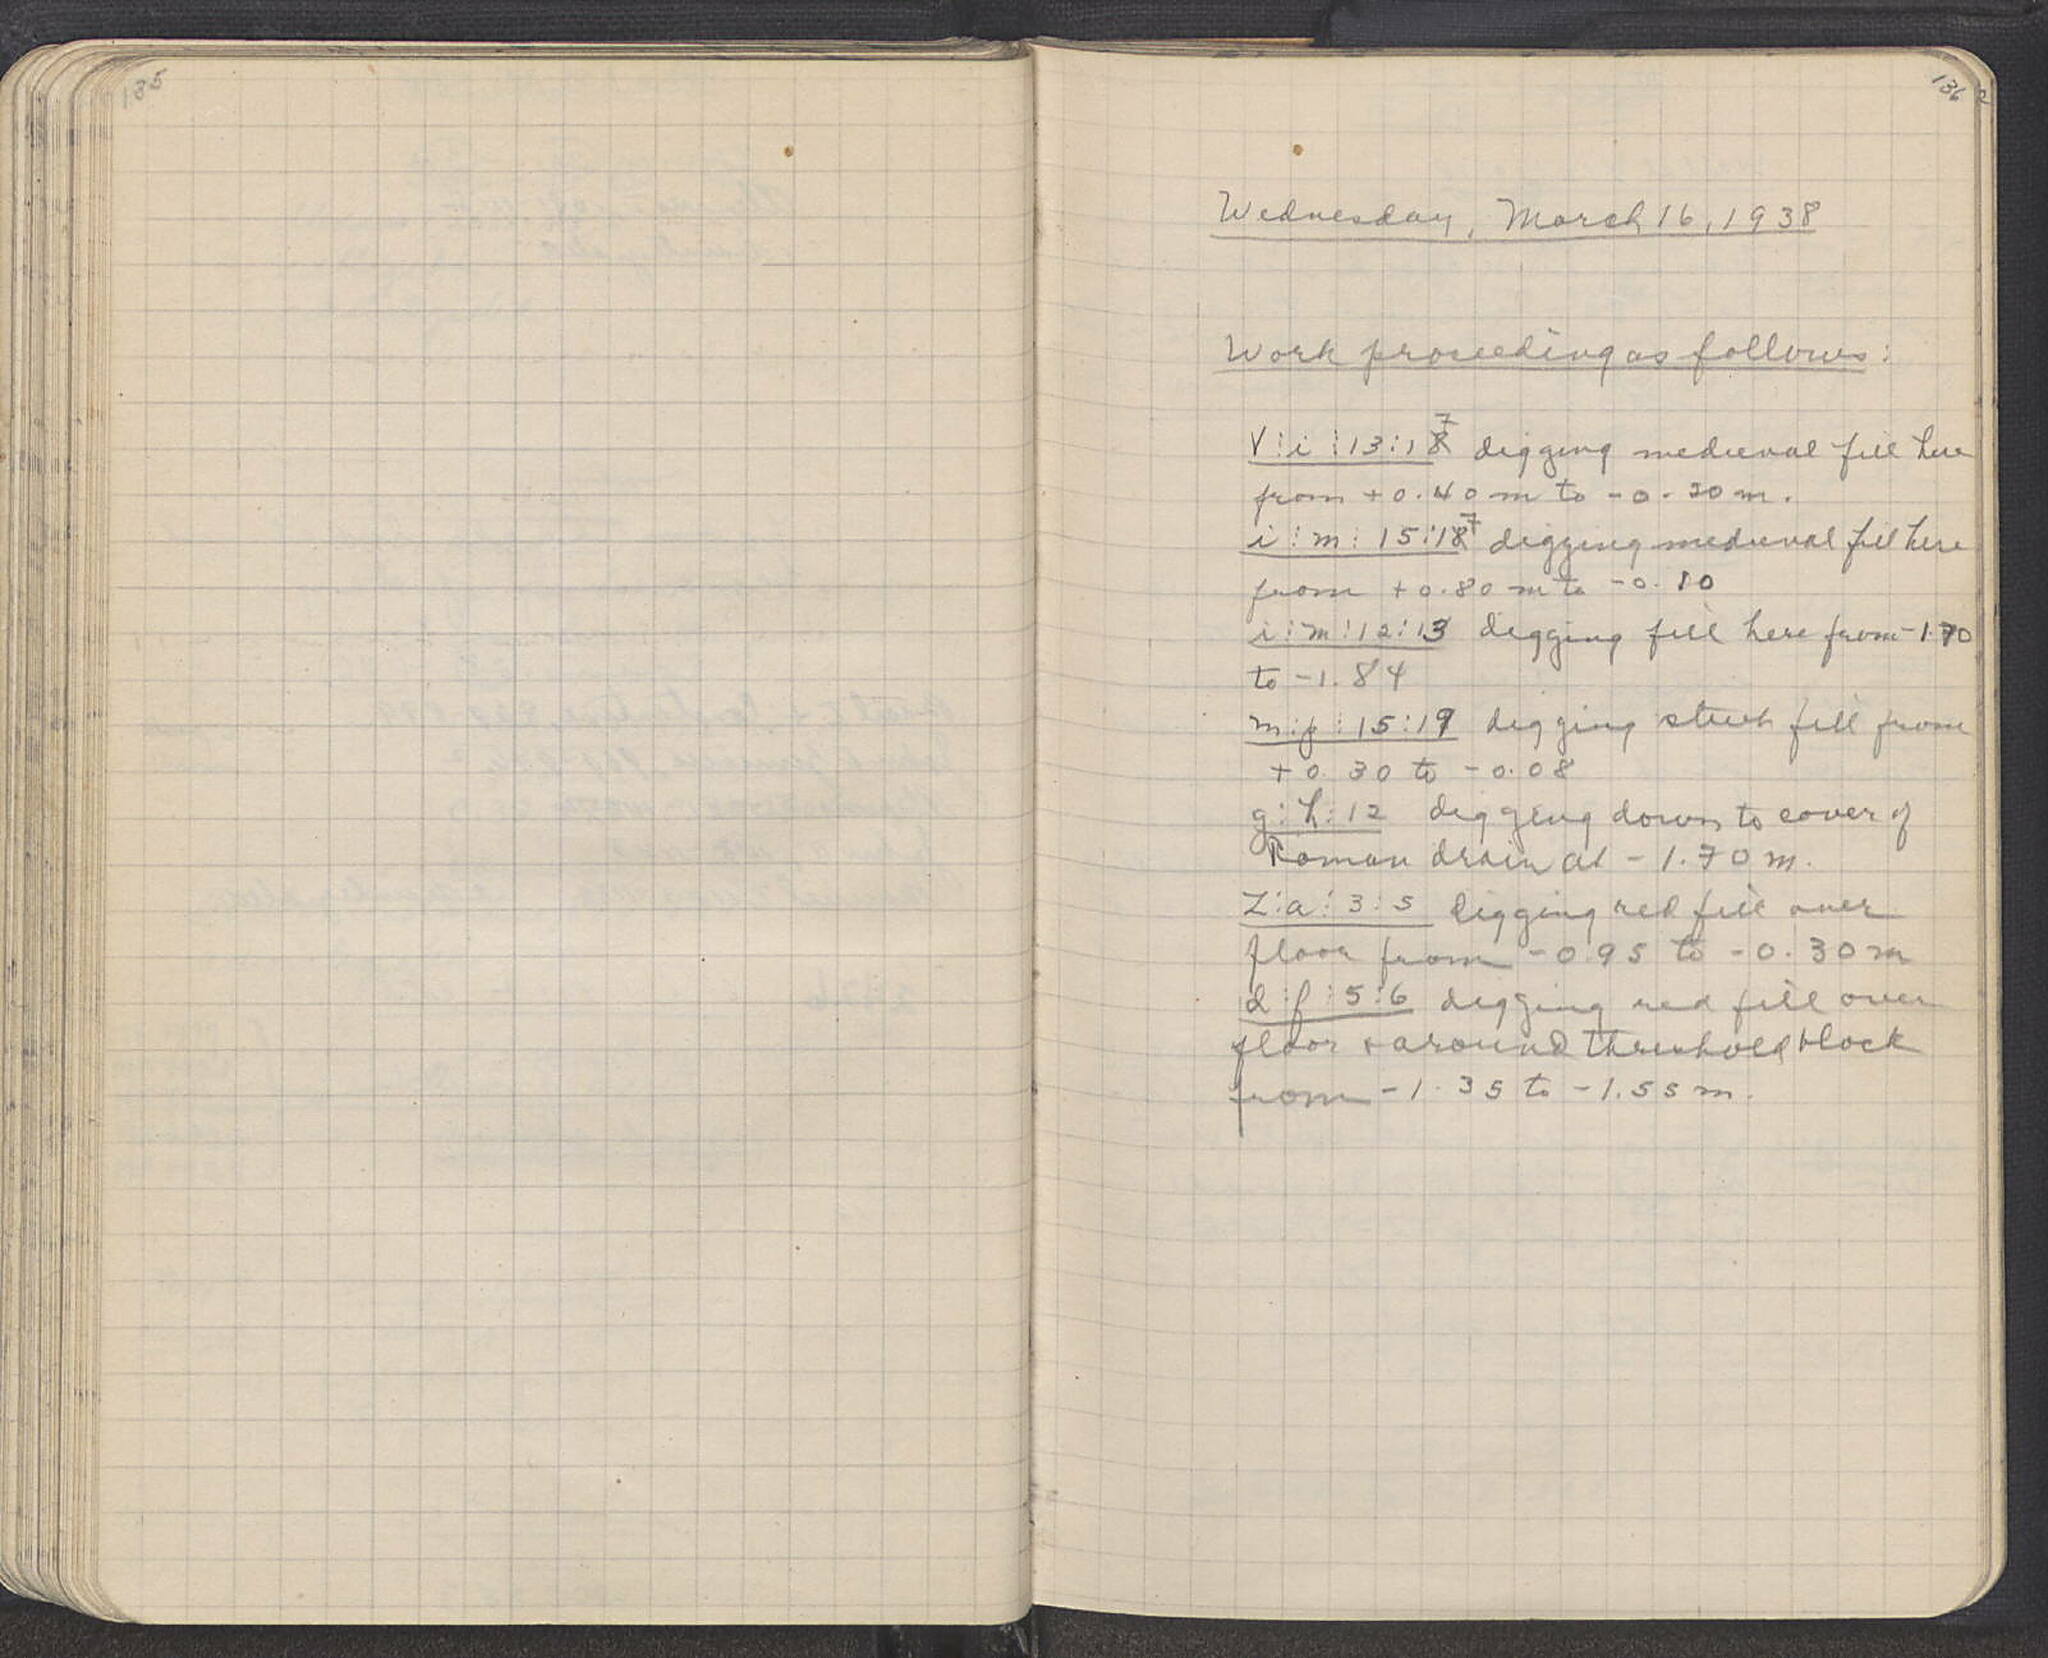 135
136
Wednesday, March 16, 1938
Work proceeding as follows:
V:i:13:187 digging medieval fill here
from +0.40 m to -0.20 m.
i:m:15:187 digging medieval fill here
from +0.80 m to -0.10
i:m:12:13 digging fill here from -1.70
to -1.84
m:p:15:19 digging fill from
+0.30 to -0.08
g:h:12 digging down to cover of
Roman drain at -1.70 m.
Z:a:3:5 digging red fill over
floor from -0.95 to -0.30 m
d:f:5:6 digging red fill over
floor + around threshold block
from -1.35 to -1.55 m.